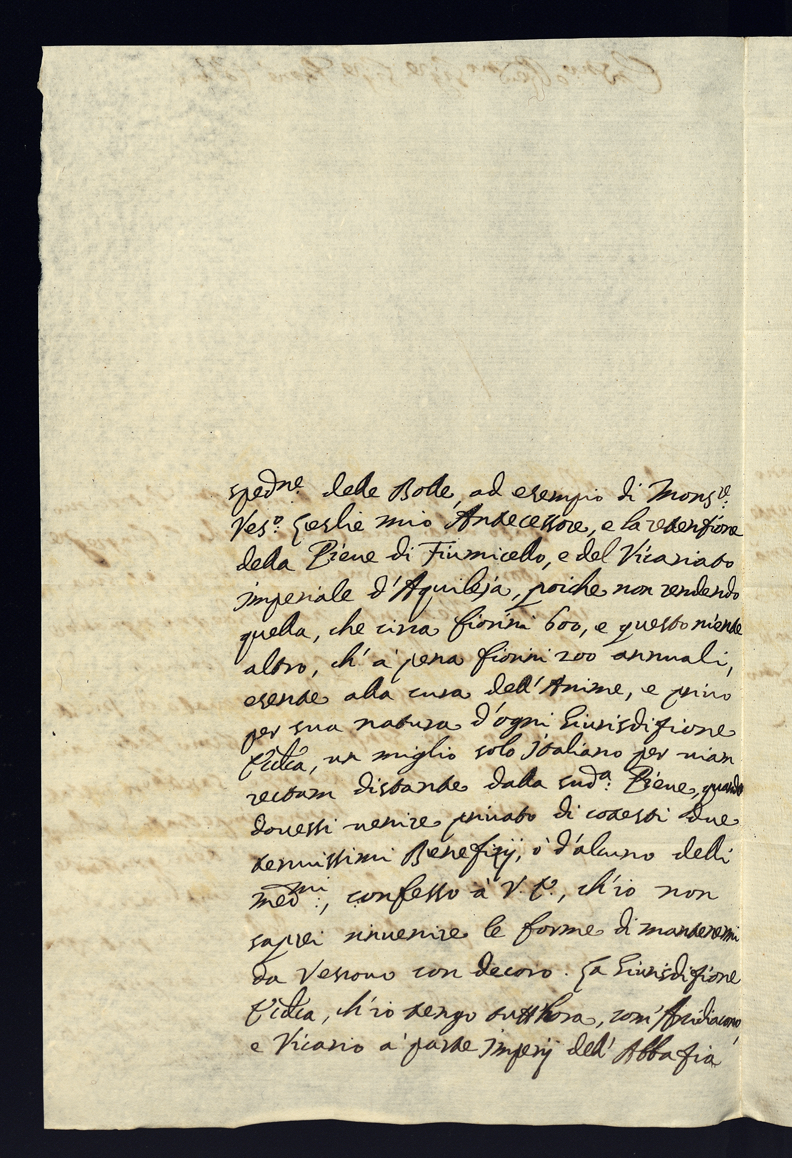 spedne delle Bolle, ad esempio di Monsre:
Veso. Leslie mio Antecessore, e la retenzione
della Pieve di Fiumicello, e del Vicariato
imperiale d'Aquileja, poiche non rendendo
quella, che circa fiorini 600, e questo niente
altro, ch'a' pena fiorini 200 annuali,
esente alla cura dell'Anime, e privo
per sua natura d'ogni Giurisdizione
un miglio solo Italiano per viam
rectam distante dalla suda: Pieve, quando
dovessi venire privato di cotesti due
tenuissimi Benefizij, ò d'alcuno delli
medmi:, confesso à V. E., ch'io non
saprei rinvenire le forme di mantenermi
da Vescovo con decoro. La Giurisdizione
ch'io tengo tutthora, com'Archidiacono,
e Vicario a' parte imperij dell'Abbazia